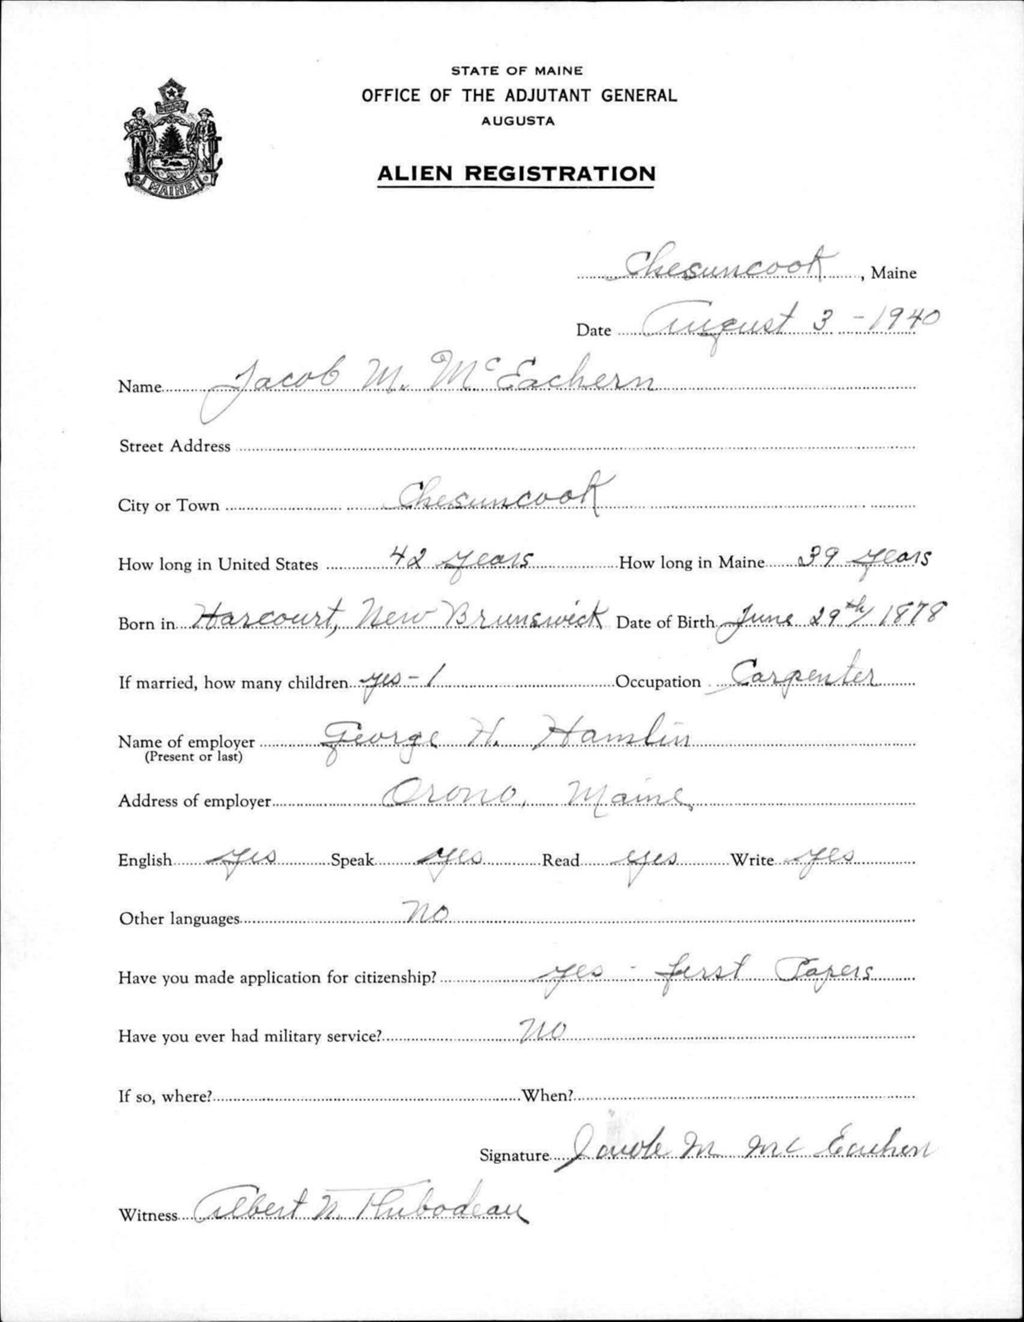 STATE OF MAINE
OFFICE OF THE ADJUTANT GENERAL
AUGUSTA
ALIEN REGISTRATION
MAINE
Chesuncook, Maine
Date August 3 - 1940
Name Jacob M. McEachern
Street Address
City or Town Chesuncook
How long in United States 42 years How long in Maine 39 years
Born in Harcourt, New Brunswick Date of Birth June 29th/1878
If married, how many children yes - 1 Occupation Carpenter
Name of employer George H. Hamlin
(Present or last)
Address of employer Orono, Maine
English yes Speak yes Read yes Write yes
Other languages No
Have you made application for citizenship? yes - first Papers
Have you ever had military service? No
If so, where? When?
Signature Jacob M McEachern
Witness Albert N. Thibodeau